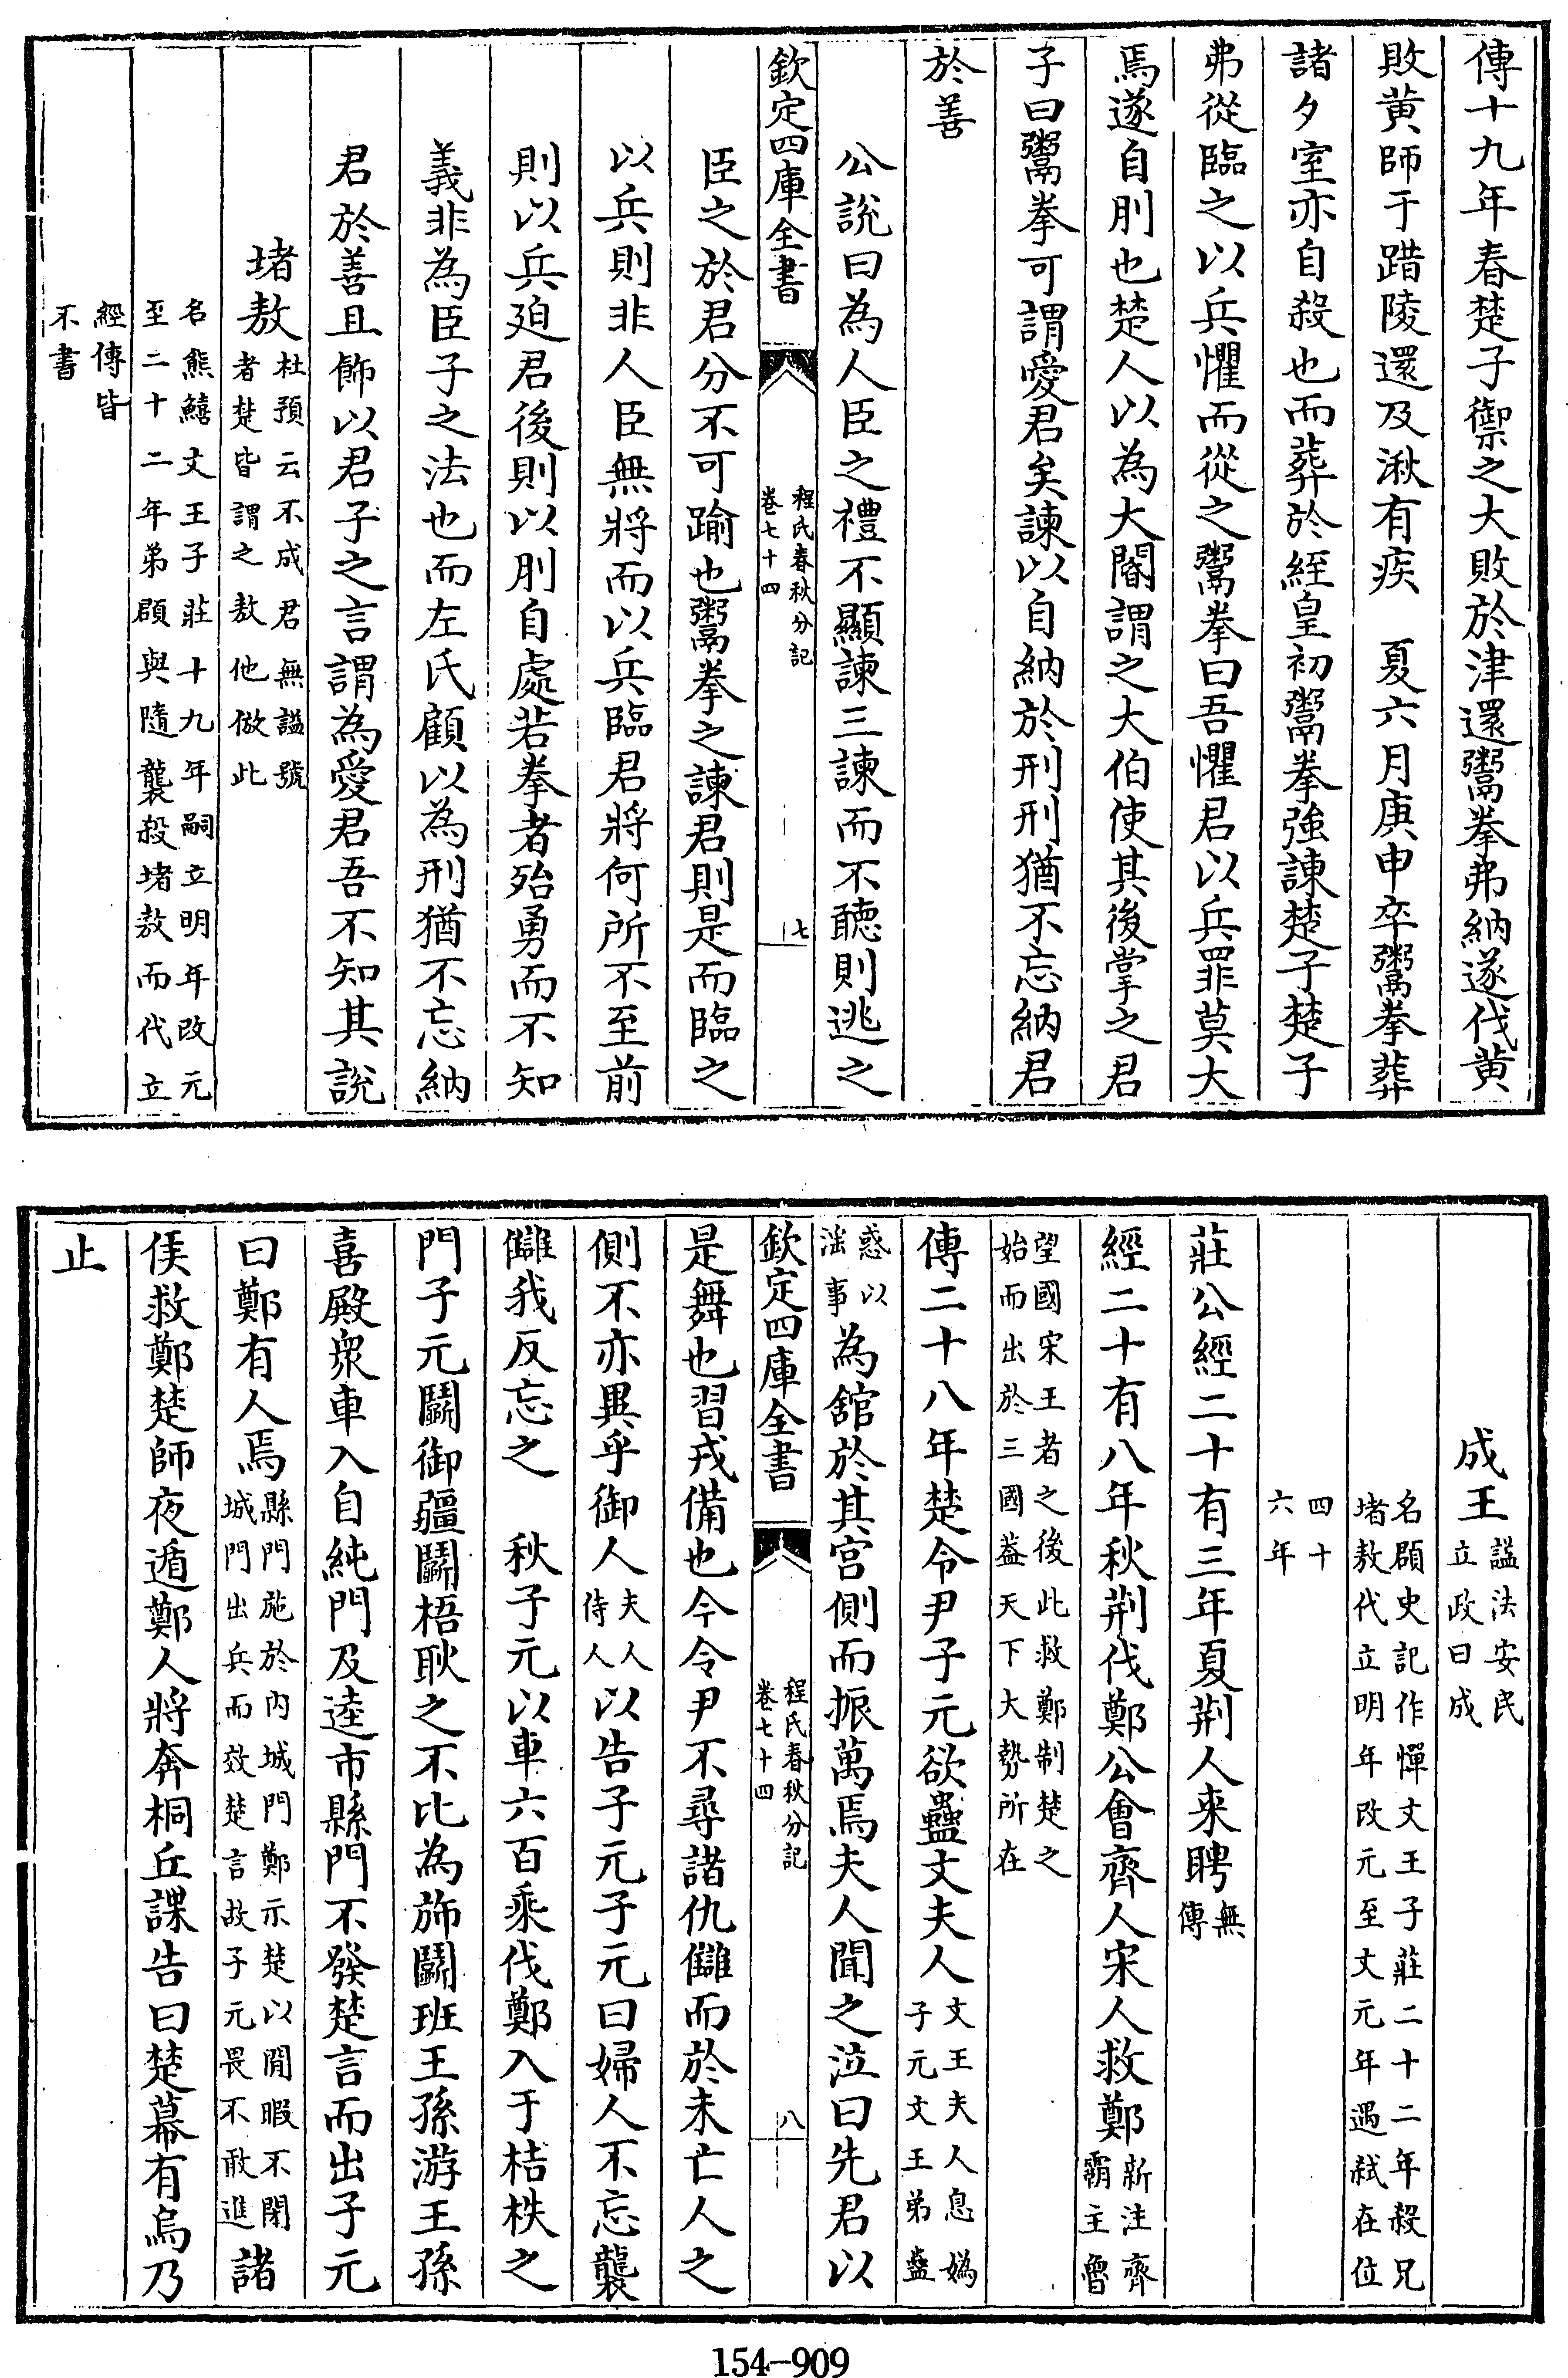 傳十九年春楚子禦之大敗於津還鬻拳弗納遂伐黄
敗黄師于踖陵還及湫有疾　夏六月庚申卒鬻拳葬
諸夕室亦自殺也而葬於絰皇初鬻拳強諫楚子楚子
弗從臨之以兵懼而從之鬻拳曰吾懼君以兵罪莫大
焉遂自刖也楚人以為大閽謂之大伯使其後掌之君
子曰鬻拳可謂愛君矣諫以自納於刑刑猶不忘納君
於善
公說曰為人臣之禮不顯諫三諫而不聽則逃之
欽定四庫全書
程氏春秋分記
卷七十四
七
臣之於君分不可踰也鬻拳之諫君則是而臨之
以兵則非人臣無將而以兵臨君將何所不至前
則以兵廹君後則以刖自處若拳者殆勇而不知
義非為臣子之法也而左氏顧以為刑猶不忘納
君於善且飾以君子之言謂為愛君吾不知其說
堵敖
杜預云不成君無謚號
者楚皆謂之敖他倣此
名熊囏文王子莊十九年嗣立明年改元
至二十二年弟頵與隨襲殺堵敖而代立
經傳皆
不書
成王
謚法安民
立政曰成
名頵史記作惲文王子莊二十二年殺兄
堵敖代立明年改元至文元年遇弒在位
四十
六年
莊公經二十有三年夏荆人来聘
無
傳
經二十有八年秋荆伐鄭公會齊人宋人救鄭
新注齊
霸主魯
望國宋王者之後此救鄭制楚之
始而出於三國葢天下大勢所在
傳二十八年楚令尹子元欲蠱文夫人
文王夫人息媯
子元文王弟蠱
惑以
淫事
為舘於其宫側而振萬焉夫人聞之泣曰先君以
欽定四庫全書
程氏春秋分記
卷七十四
八
是舞也習戎備也今令尹不尋諸仇讎而於未亡人之
側不亦異乎御人
夫人
侍人
以告子元子元曰婦人不忘襲
讎我反忘之　秋子元以車六百乘伐鄭入于桔柣之
門子元鬭御疆鬭梧耿之不比為斾鬭班王孫游王孫
喜殿衆車入自純門及逵市縣門不發楚言而出子元
曰鄭有人焉
縣門施於内城門鄭示楚以閒暇不閉
城門出兵而效楚言故子元畏不敢進
諸
侯救鄭楚師夜遁鄭人將奔桐丘諜告曰楚幕有烏乃
止
154-909